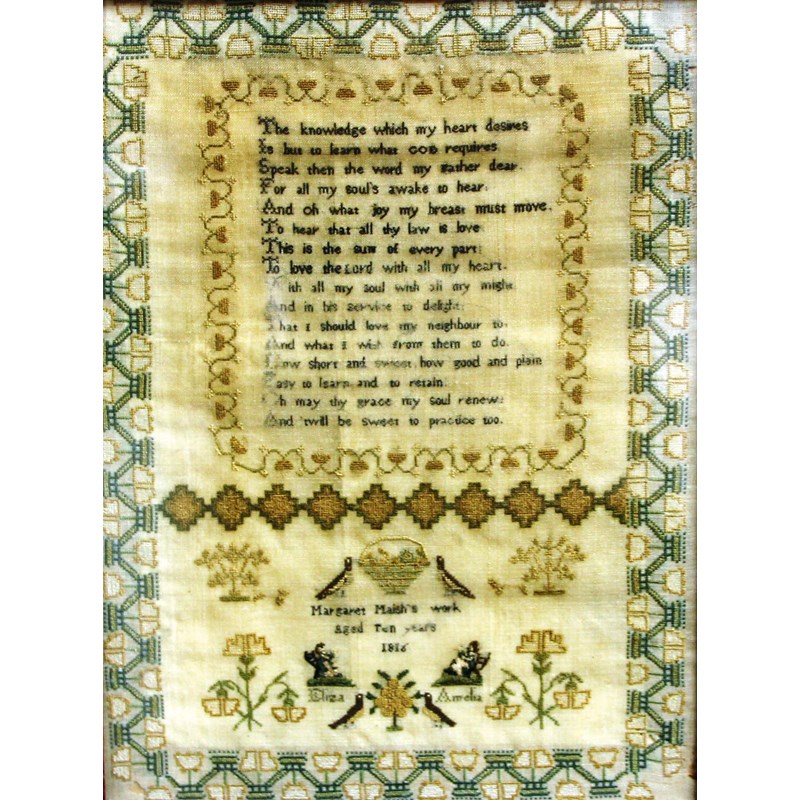 The knowledge which my heart desires
Is but to learn what GOD requires
Speak then the word my father dear.
For all my soul's awake to hear.
And Oh what joy my breast must move.
To hear that all thy law is love
This is the sum of every part:
To love the LORD with all my heart.
With all my soul with all my might
And in his service to delight:
That I should love my neighbour to.
And what I wish from them to do.
How short and sweet how good and plain
Easy to learn and to retain.
Oh may thy grace my soul renew:
And 'twill be sweet to practice too.
Margaret Maish's work
Aged Ten years
1816
Eliza Amelia